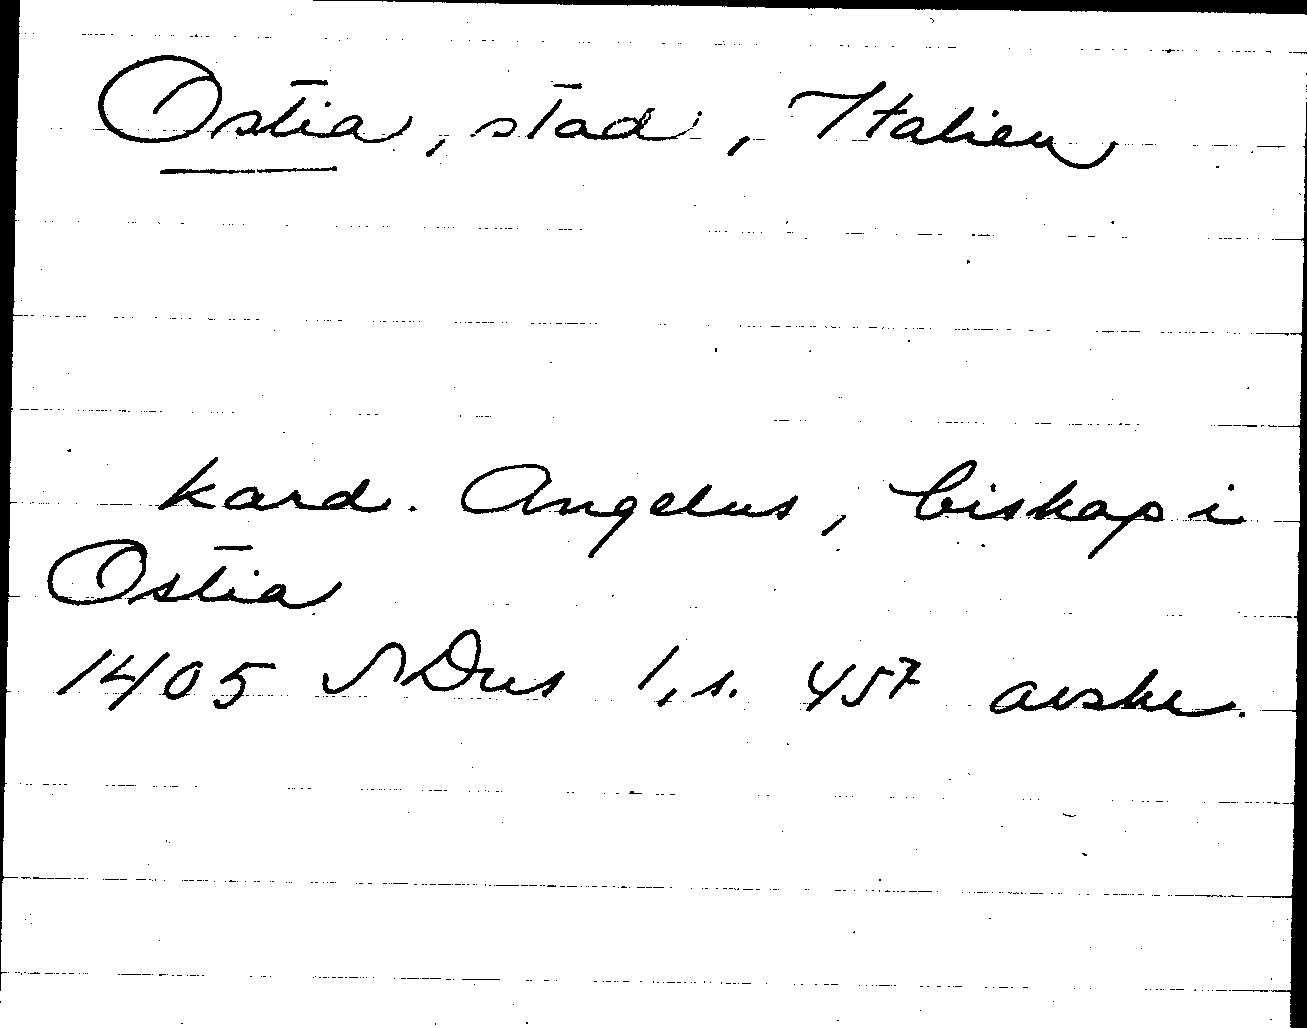 Ostia, stad, Italien
kard. Angelus, biskap i
Ostia
1405 SDns 1, s. 457 avskr.